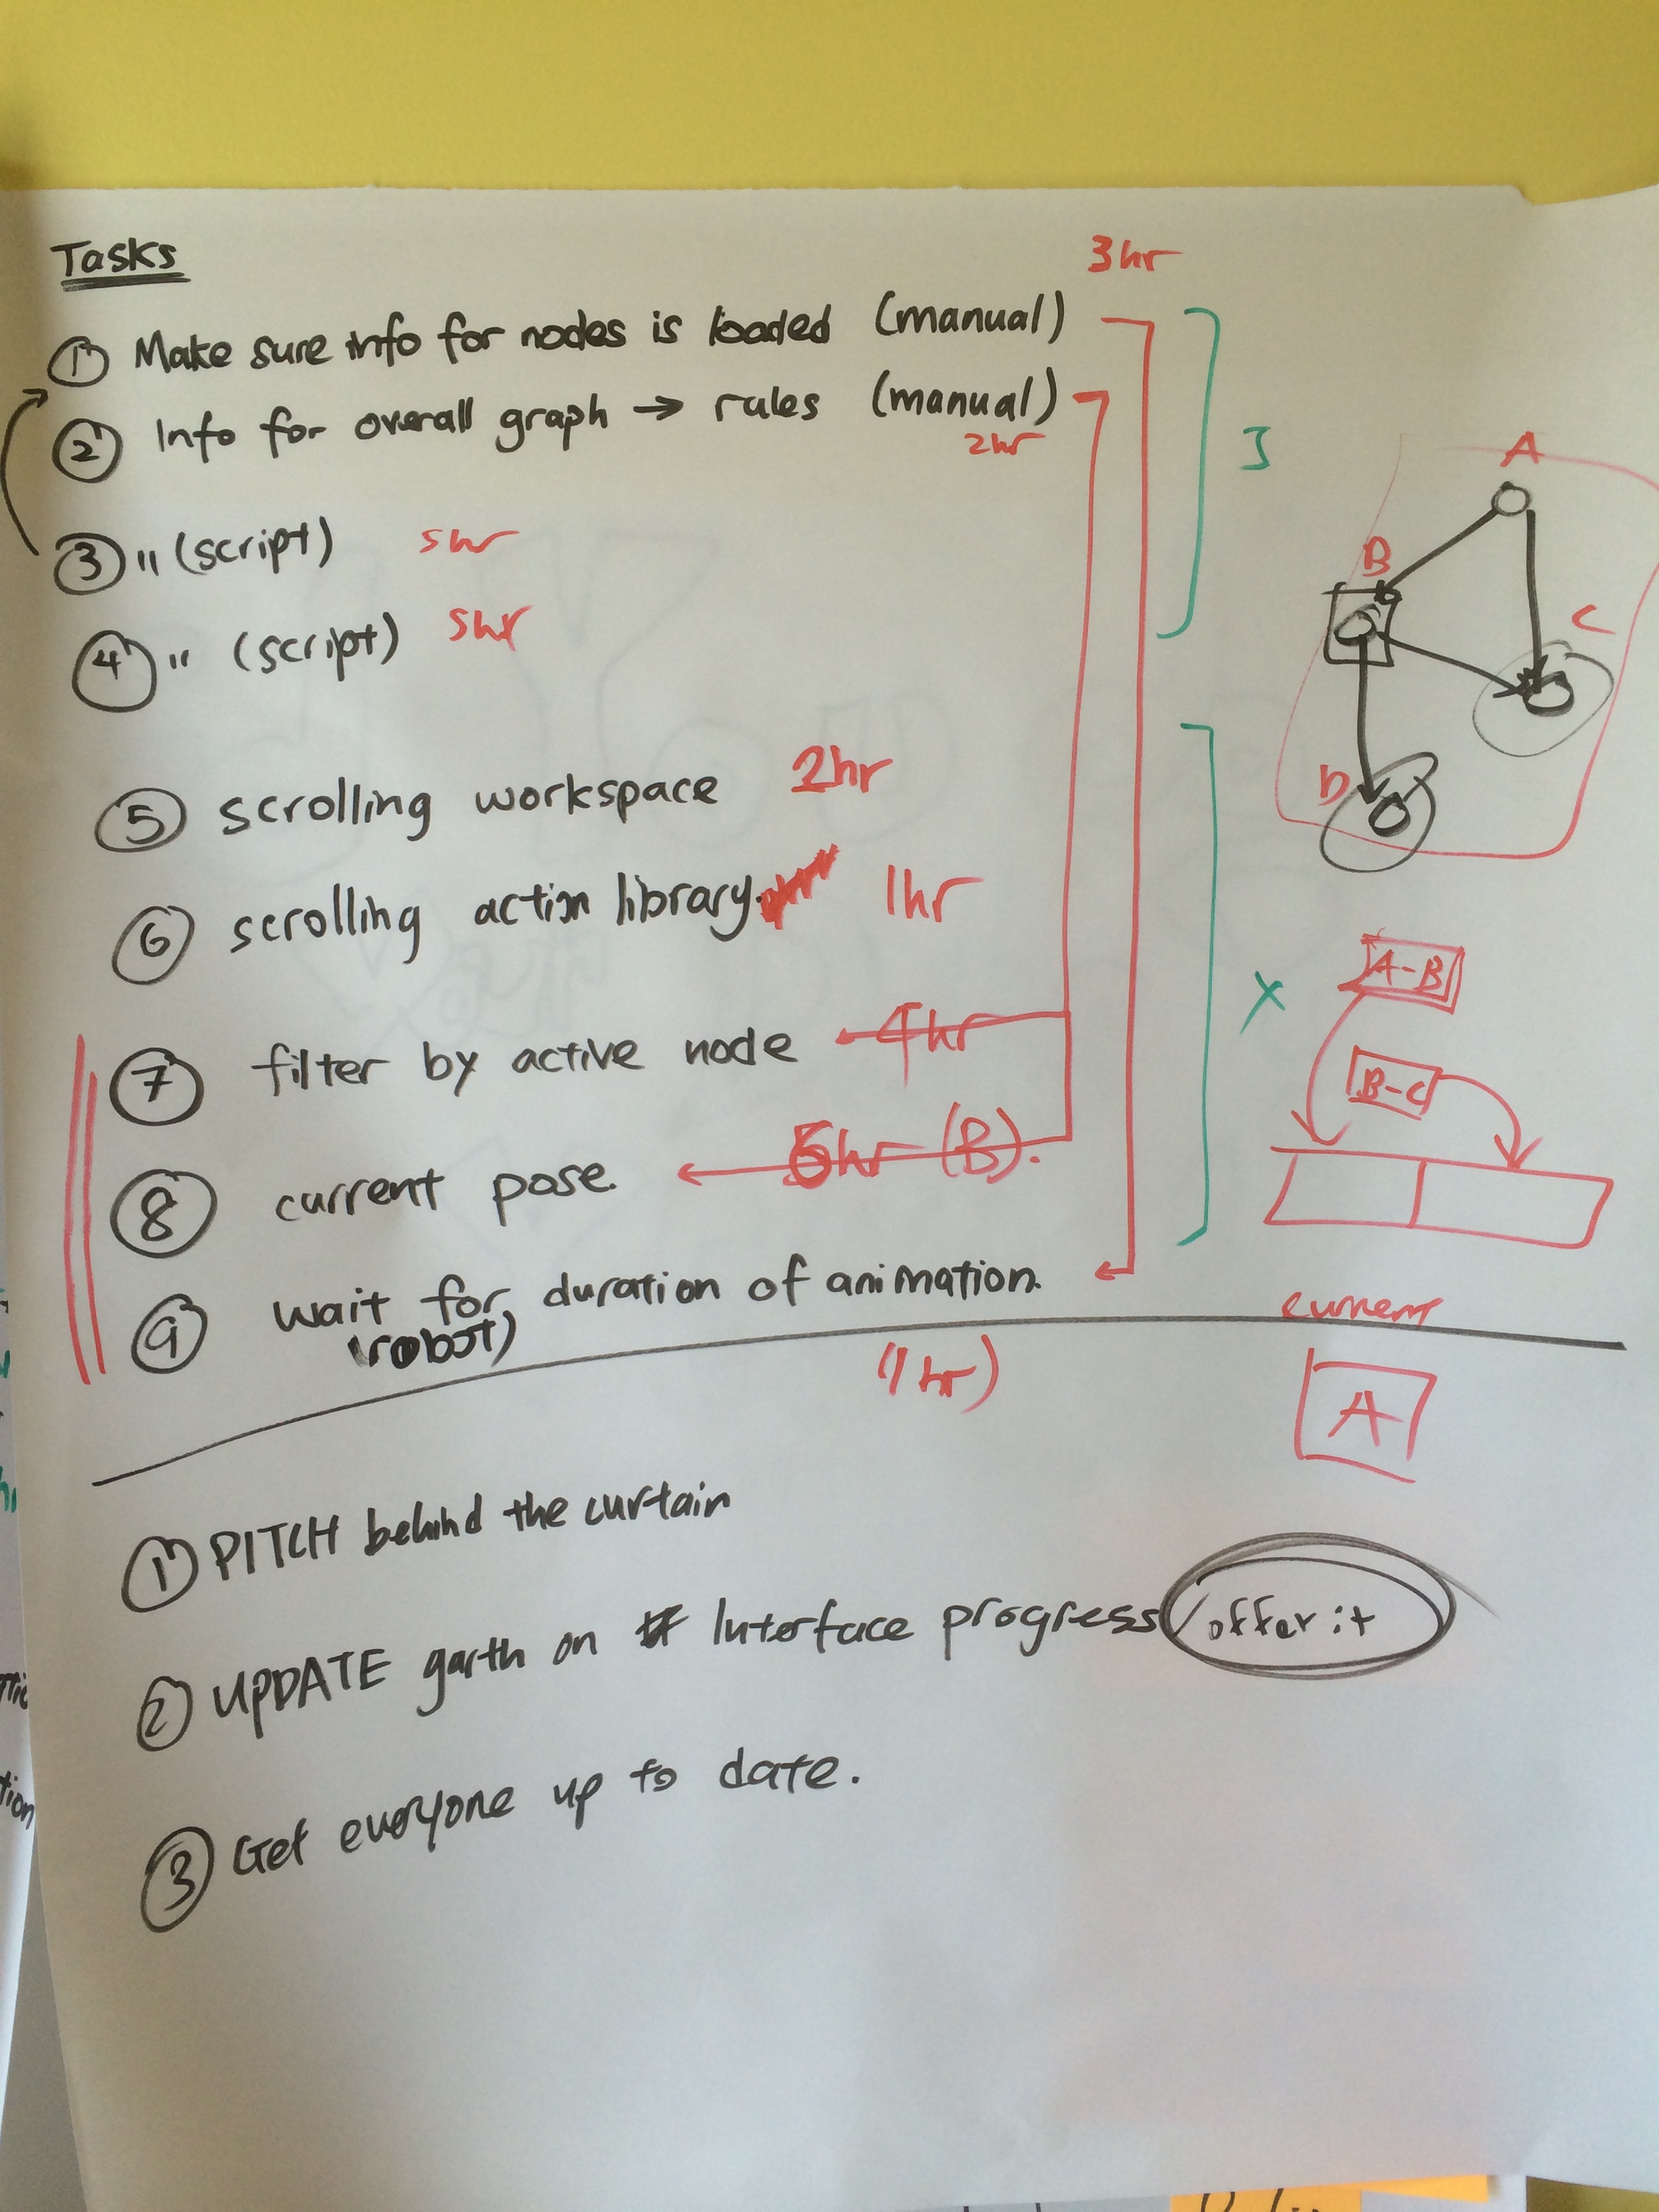 Tasks
3hr
① Make sure info for nodes is loaded (manual)
② Info for overall graph → rules (manual)
2hr
③ " (script) 5hr
④ " (script) 5hr
⑤ scrolling workspace 2hr
⑥ scrolling action library. 1hr
⑦ filter by active node 4hr
⑧ current pose. 5hr (B).
⑨ wait for duration of animation.
(robot)
(1hr)
① PITCH behind the curtain
② UPDATE garth on Interface progress / offer it
③ Get everyone up to date.
J
X
A
B
C
D
A-B
B-C
current
A